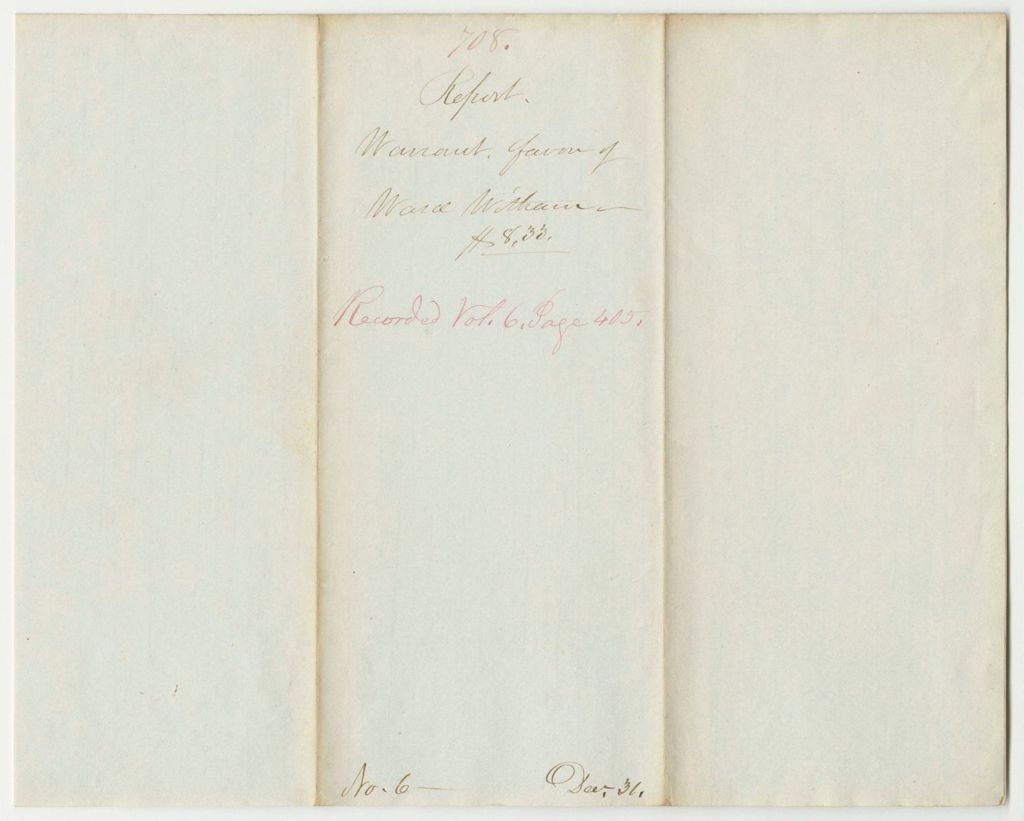 708.
Report.
Warrant. favor of
Ward Witham
$8,33.
Recorded Vol. 6. Page 405.
No. 6
Dec. 31.